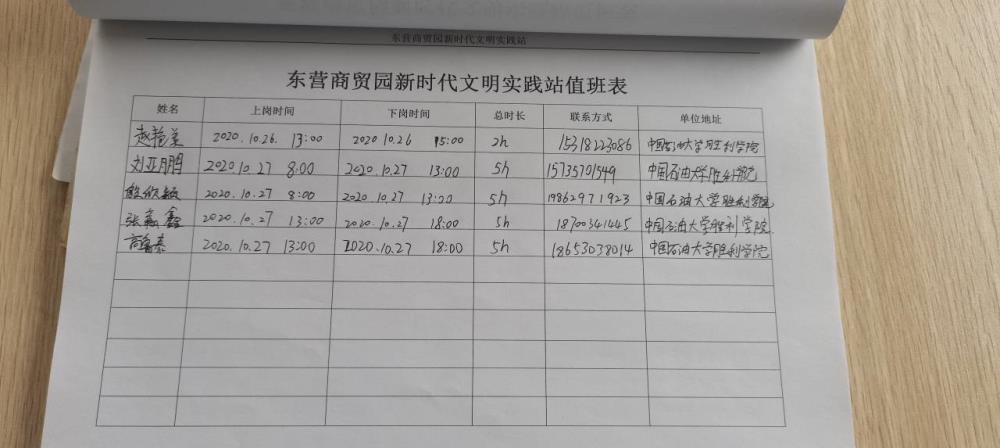 东营商贸园新时代文明实践站
东营商贸园新时代文明实践站值班表
姓名 上岗时间 下岗时间 总时长 联系方式 单位地址
赵艳美 2020.10.26. 13:00 2020.10.26 15:00 2h 15318223086 中国石油大学胜利学院
刘亚鹏 2020.10.27 8:00 2020.10.27 13:00 5h 15735701549 中国石油大学胜利学院
殷欣颖 2020.10.27 8:00 2020.10.27 13:00 5h 19862971923 中国石油大学胜利学院
张嘉鑫 2020.10.27 13:00 2020.10.27 18:00 5h 18700341445 中国石油大学胜利学院
高鲁泰 2020.10.27 13:00 2020.10.27 18:00 5h 18653038014 中国石油大学胜利学院